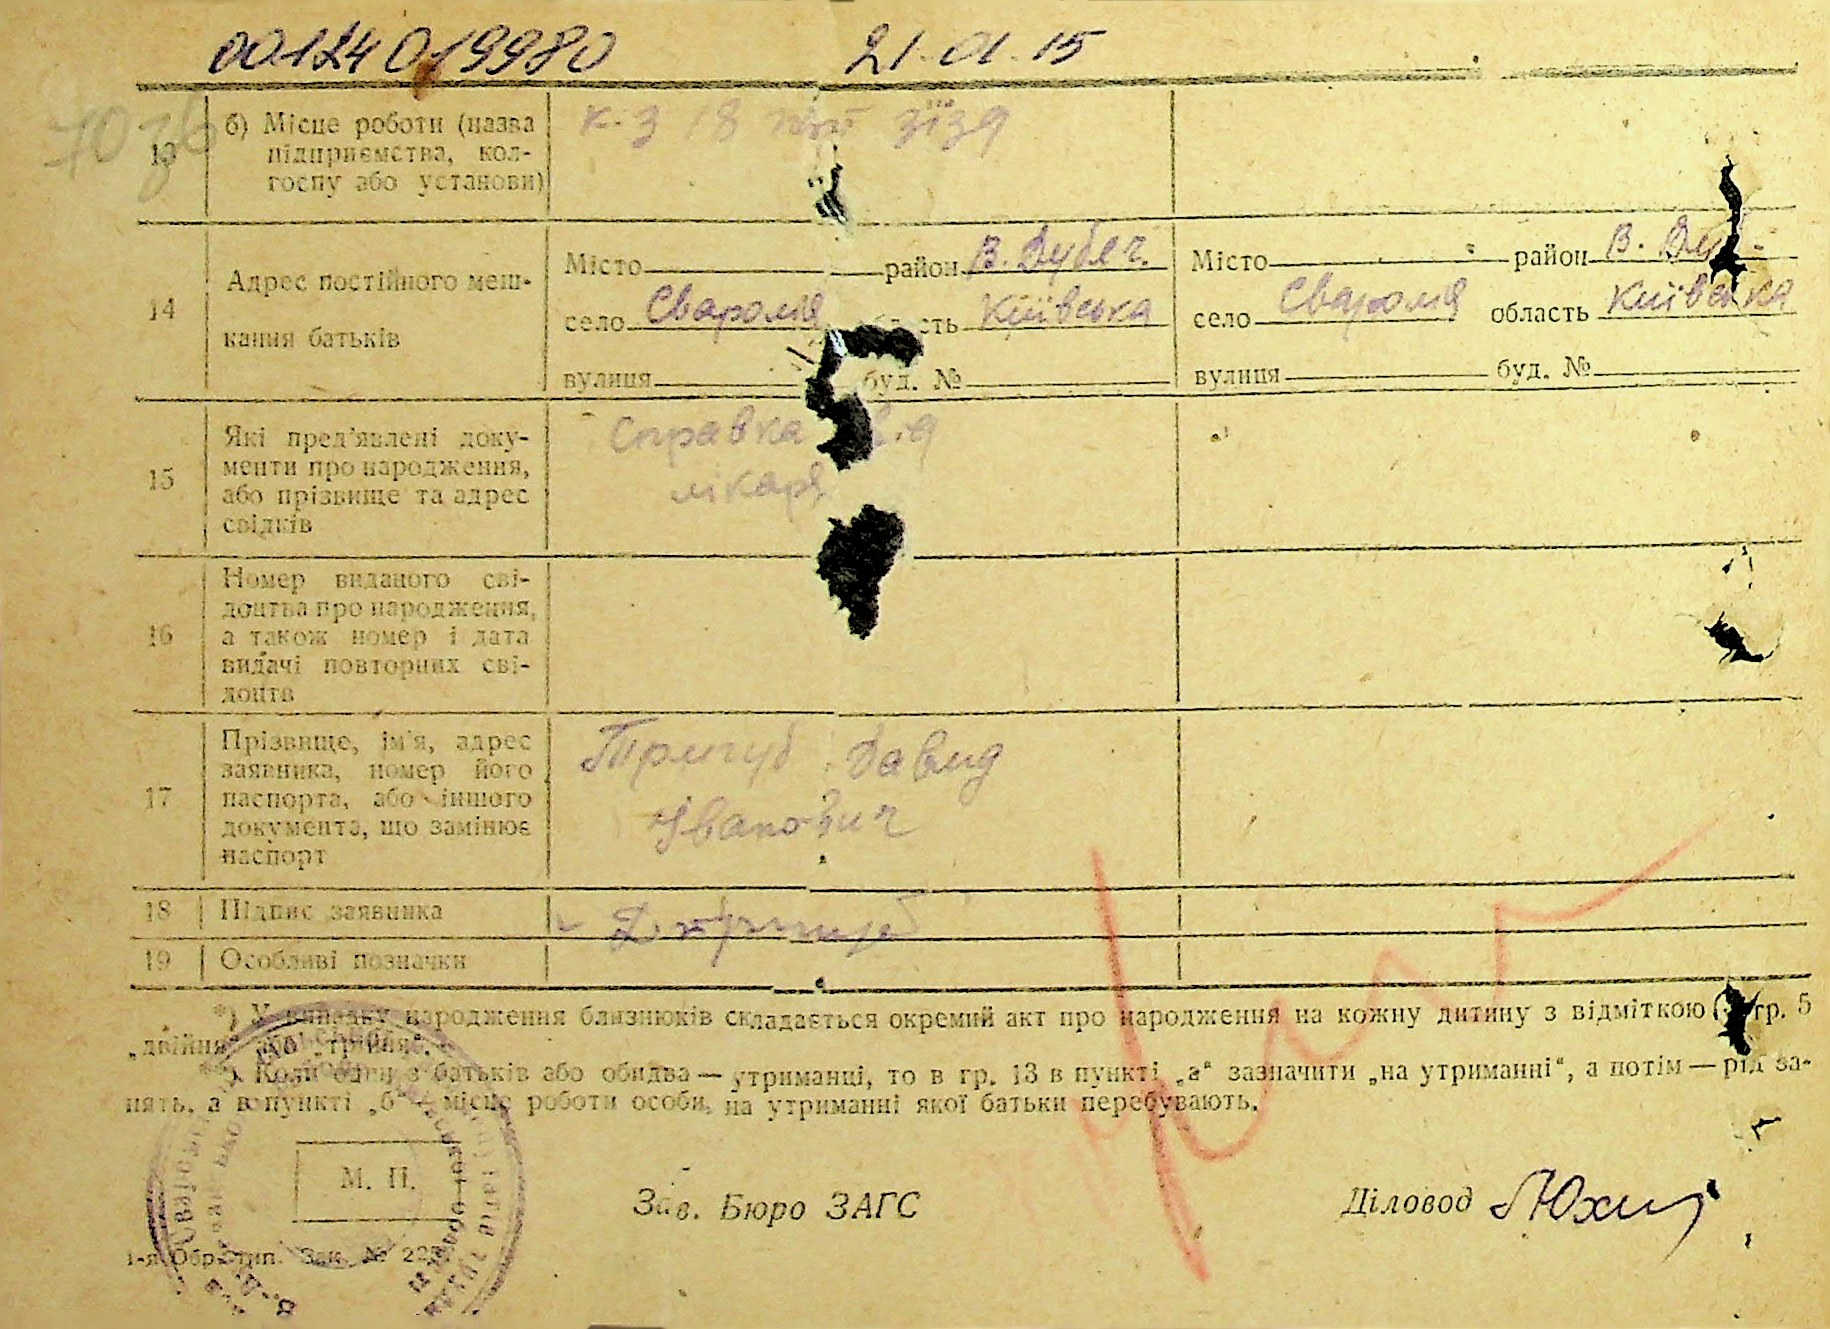 00124019980 21.01.15
13 б) Місце роботи (назва підприємства, кол-
госпу або установи)
к-з 18 зїзд
14 Адрес постійного меш-
кання батьків
Місто район В. Дубеч.
село Сваромя область Київська
вулиця буд. №
Місто район В. Дуб-
село Сваромя область Київська
вулиця буд. №
15 Які пред'явлені доку-
менти про народження,
або прізвище та адрес
свідків
Справка
лікаря
16 Номер виданого сві-
доцтва про народження,
а також номер і дата
видачі повторних сві-
доцтв
17 Прізвище, ім'я, адрес
заявника, номер його
паспорта, або іншого
документа, що замінює
паспорт
Тригуб Давид
Іванович
18 Підпис заявника
19 Особливі позначки
*) У випадку народження близнюків складається окремий акт про народження на кожну дитину з відміткою в гр. 5
„двійня“ або „трійня“.
Коли один з батьків або обидва — утриманці, то в гр. 13 в пункті „а“ зазначити „на утриманні“, а потім — рід за-
нять, а в пункті „б“ — місце роботи особи, на утриманні якої батьки перебувають.
М. П.
Зав. Бюро ЗАГС
Діловод
1-я Обр. тип. Зак. №